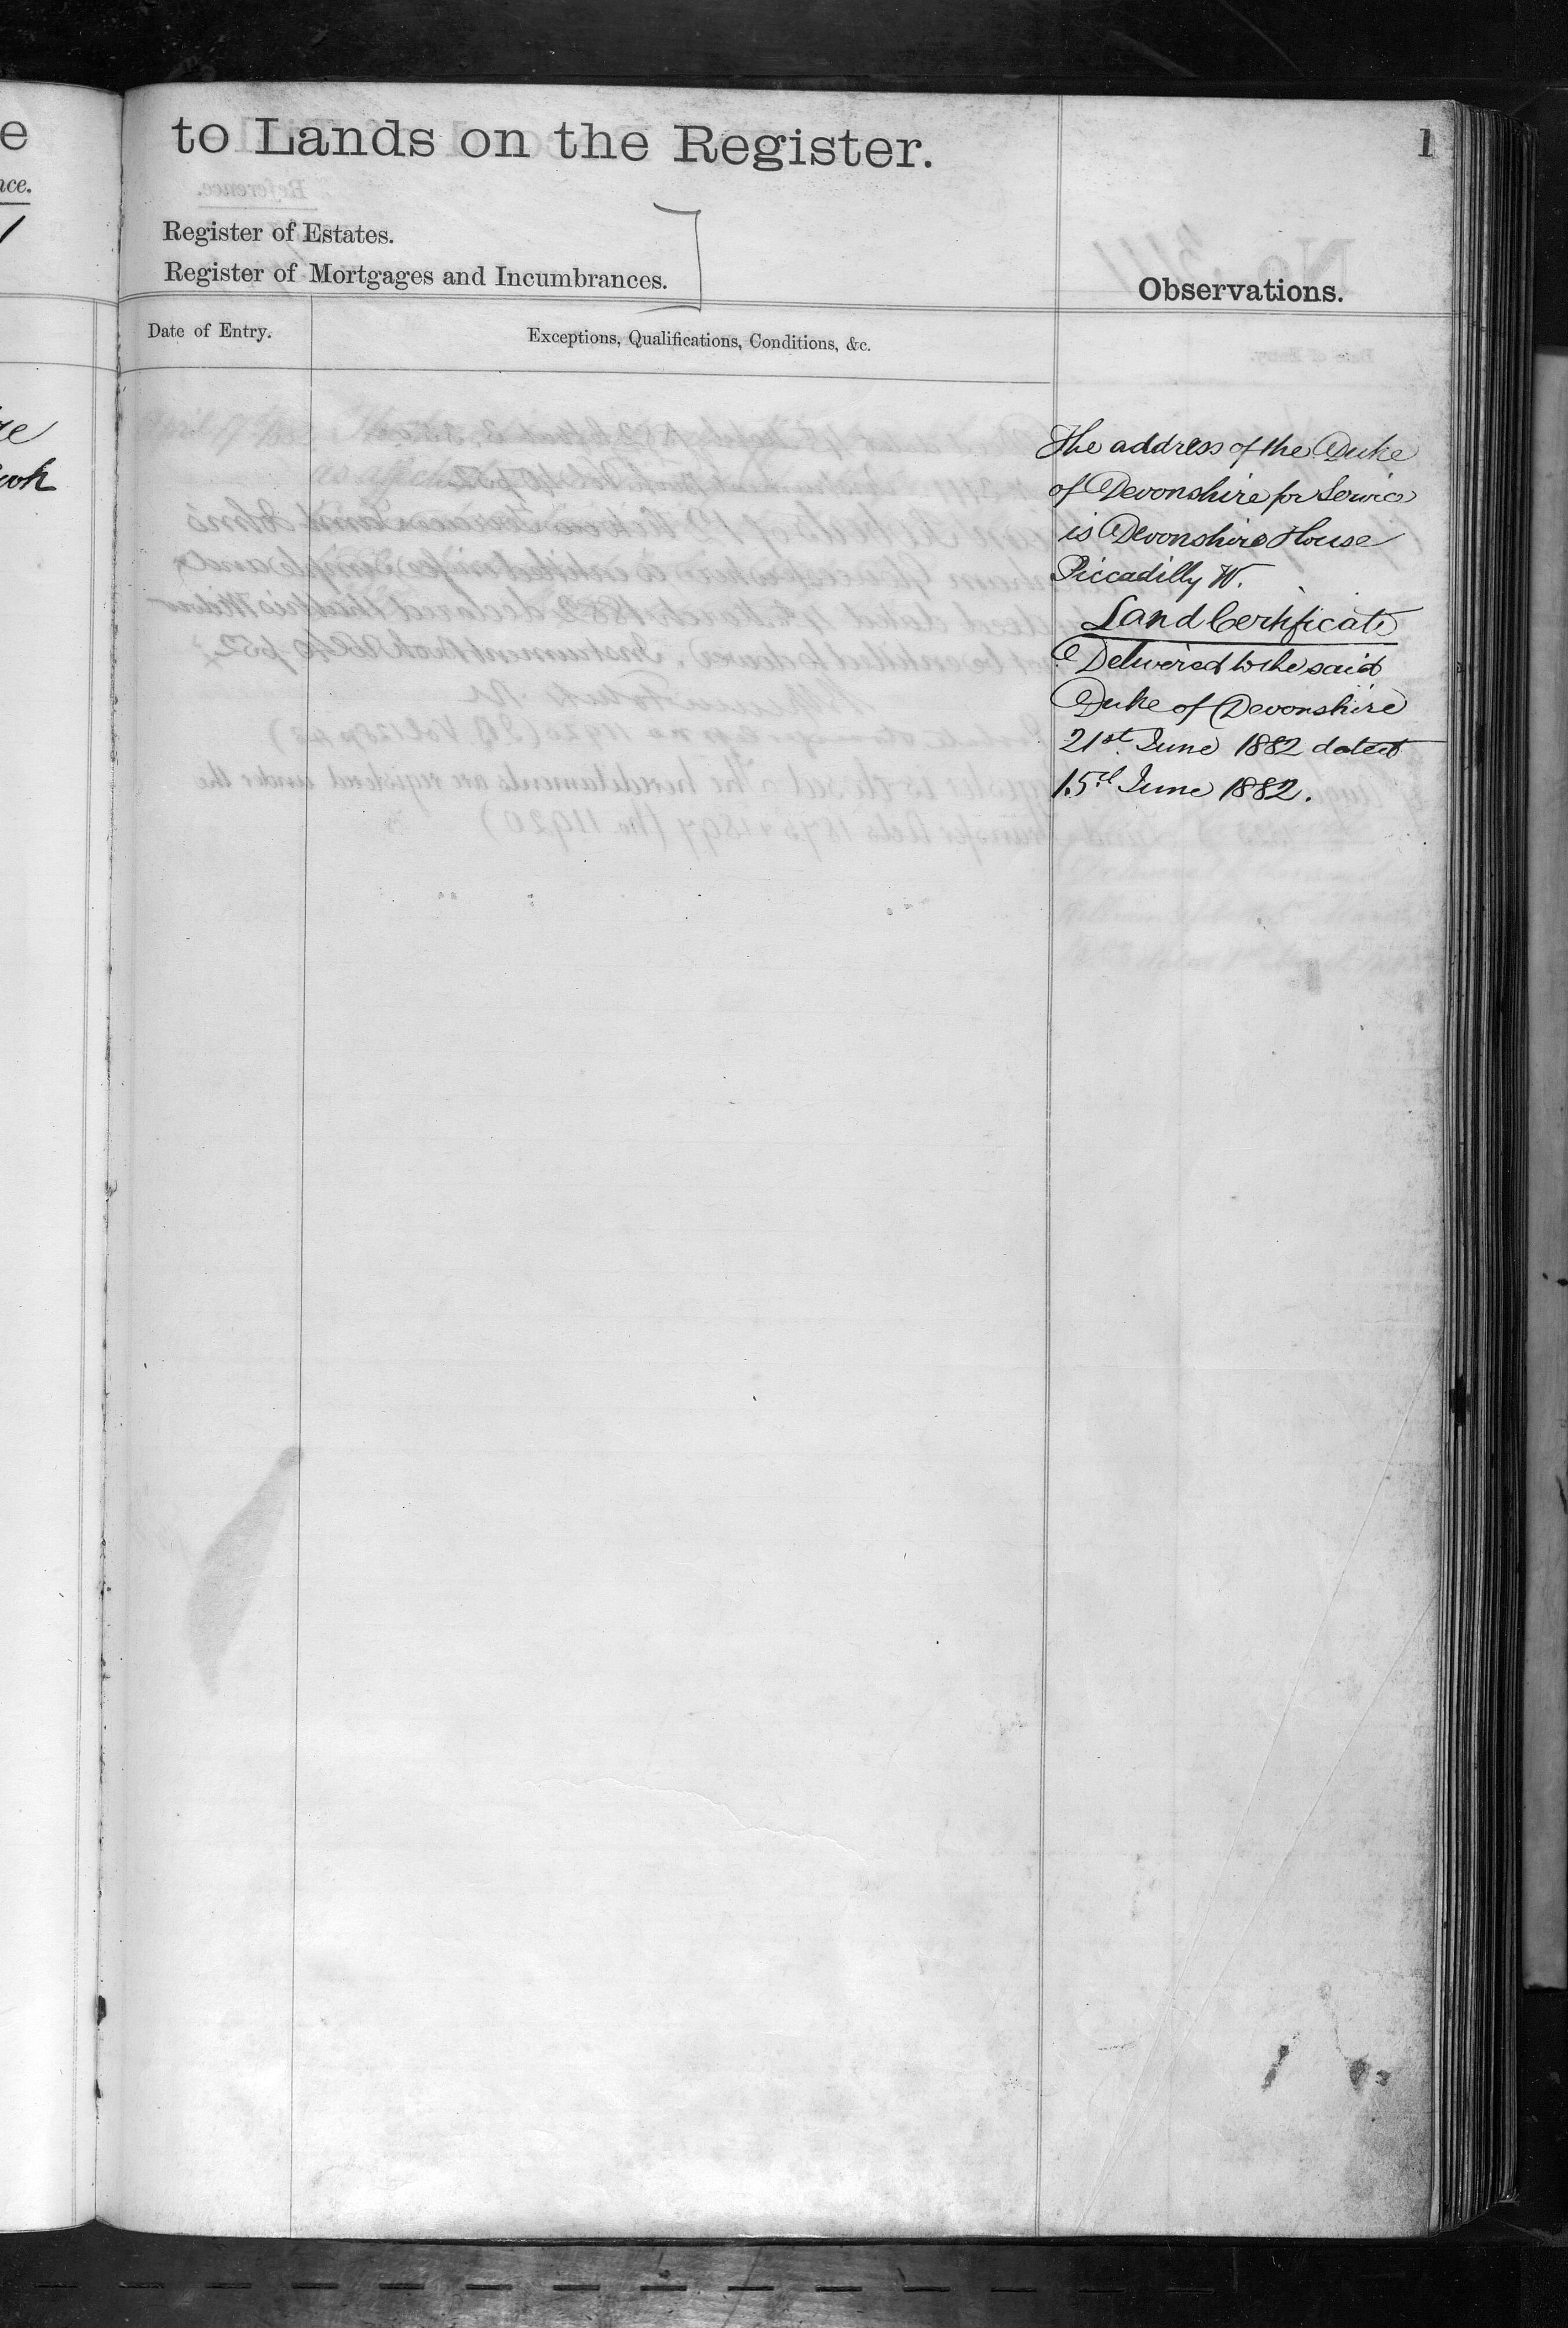 to Lands on the Register.
1
Register of Estates.
Register of Mortgages and Incumbrances.
Observations.
Date of Entry.
Exceptions, Qualifications, Conditions, &c.
The address of the Duke
of Devonshire for Service
is Devonshire House
Piccadilly W.
Land Certificate
Delivered to the said
Duke of Devonshire
21st June 1882 dated
15th June 1882.